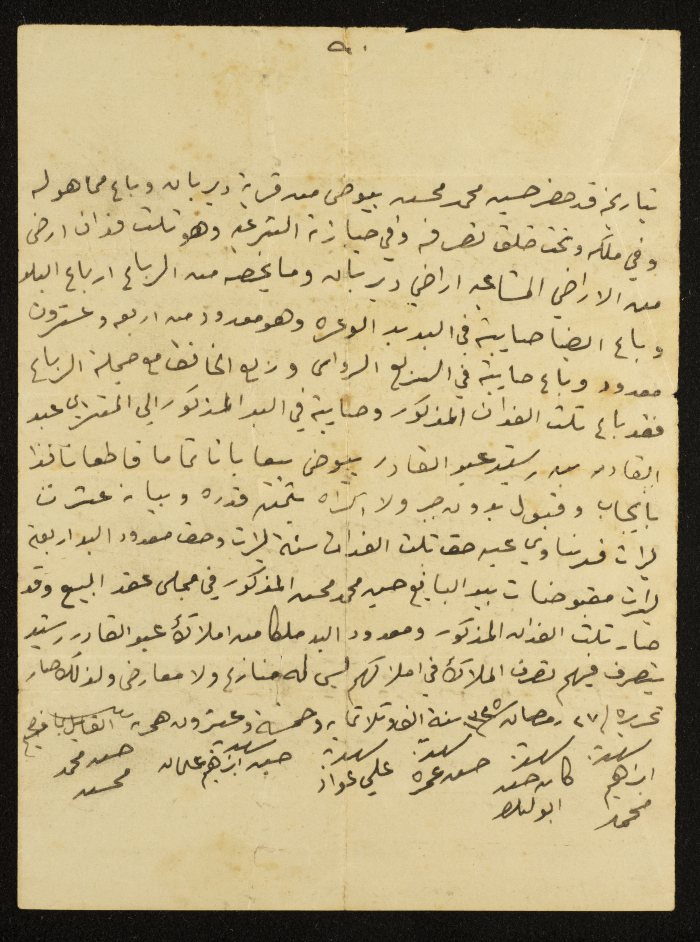 ٥٠
بتاريخه قد حضر حسين محمد محسن بيوض من قرية دير بان وباع مما هو له
وفي ملكه وتحت طلق تصرفه وفي حيازته الشرعيه وهو تلت فدان ارض
من الاراضي المشاعيه اراضي دير بان وما يخصه من الرباع ارباع البلد
وباع ايضا حبايبة في البد بد الوعره وهو معدود من اربعه وعشرون
معدود وباع حبايبة في الربع ومن جملة الرباع
فقد باع تلت الفدان المذكور وحبايبة في البد المذكور الى المشتري عبد
القادر بن رشيد عبد القادر بيوض بيعا باتا تاما قاطعا نافذا
بايجاب وقبول بدون جبر ولا اكراه بثمن قدره وبيانه عشرة
ليرات فرنساوي عنه حق تلت الفدان ستة ليرات وحق معدود البد اربعة
ليرات مقبوضات بيد البايع حسين محمد محسن المذكور في مجلس عقد البيع وقد
صار تلت الفدان المذكور ومعدود البد ملكا من املاك عبد القادر رشيد
يتصرف فيهم تصرف الملاك في املاكهم ليس له منازع ولا معارض ولذلك صار
تحريره في ٢٧ رمضان سنة ٣٢٥ سنة الف وثلاثماية وخمسة وعشرون هجرية القابل بما فيه
شهد ابراهيم محمد
شهد حسن ابو
شهد حسن عمره
شهد علي عواد
شهد حسين ابراهيم علان
حسين محمد محسن